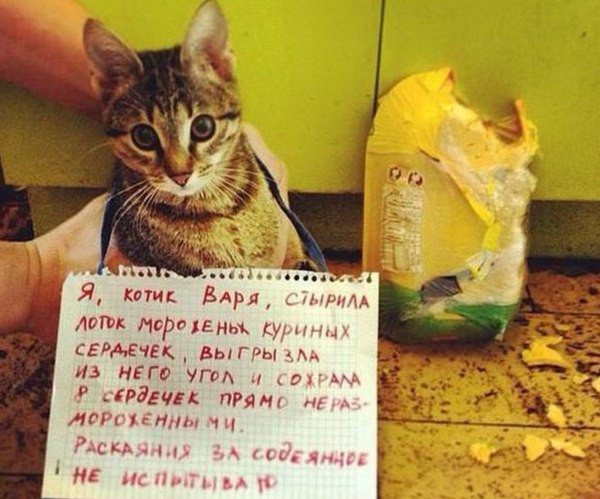 Я, КОТИК ВАРЯ, СТЫРИЛА
ЛОТОК МОРОЖЕНЫХ КУРИНЫХ
СЕРДЕЧЕК, ВЫГРЫЗЛА
ИЗ НЕГО УГОЛ И СОЖРАЛА
8 СЕРДЕЧЕК ПРЯМО НЕРАЗ-
МОРОЖЕННЫМИ.
РАСКАЯНИЯ ЗА СОДЕЯННОЕ
НЕ ИСПЫТЫВАЮ